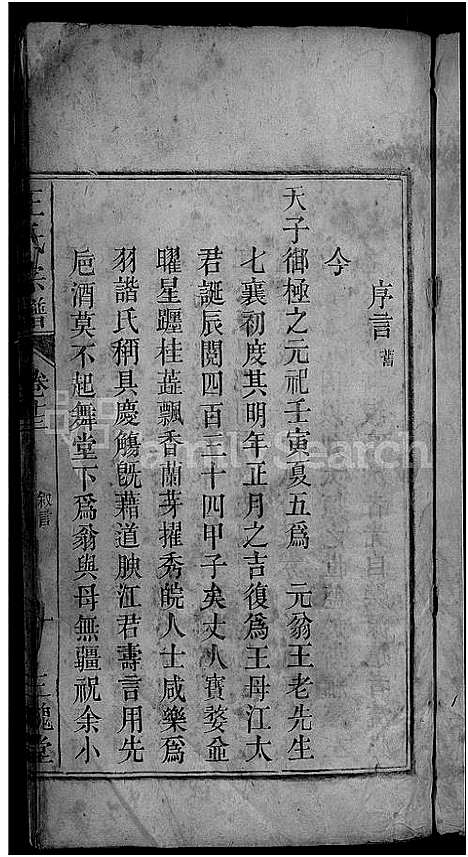 序言 舊
今
天子御極之元祀壬寅夏五爲 元翁王老先生
七襄初度其明年正月之吉復爲王母江太
君誕辰閱四百三十四甲子矣丈人寶婺並
曜星躔桂蕋飄香蘭芽擢秀皖人士咸樂爲
羽諧氏稱具慶觴旣藉道腴江君壽言用先
巵酒莫不起舞堂下爲翁與母無疆祝余小
王氏宗譜
卷十三
叙言
十
三槐堂
FamilySearch